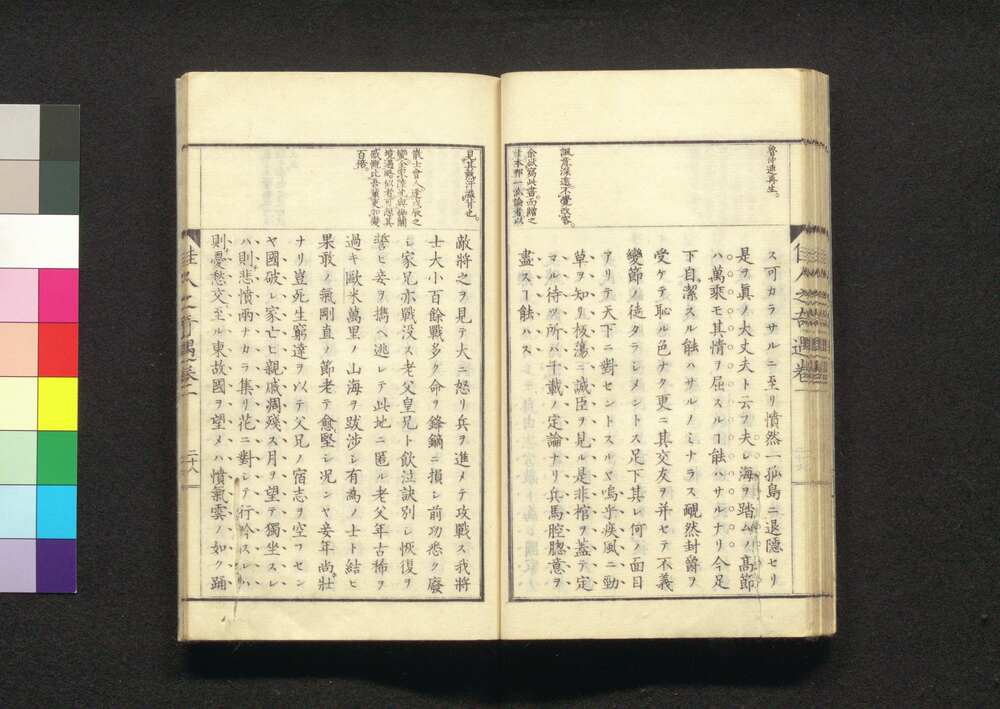 魯仲連再生。
諷意深遠不覺改容。
ス可カラサルニ至リ憤然一孤島ニ退隱セリ
是ヲ眞ノ大丈夫ト云フ夫レ海ヲ踏ムノ高節
ハ萬乘モ其情ヲ屈スルヿ能ハサルナリ今足
下自潔スル能ハサルノミナラス靦然封爵ヲ
受ケテ恥ル色ナク更ニ其交友ヲ并セテ不義
變節ノ徒タラシメントス足下其レ何ノ面目
アリテ天下ニ對セントスルヤ嗚乎疾風ニ勁
草ヲ知リ板蕩ニ誠臣ヲ見ル是非棺ヲ蓋テ定
マル待ツ所ハ千載ノ定論ナリ兵馬腔臆意ヲ
盡スヿ能ハス
散士會人逢戊辰之
百倦
敵將之ヲ見テ大ニ怒リ兵ヲ進メテ攻戰ス我將
士大小百餘戰多ク命ヲ鋒鏑ニ損シ前功悉ク廢
シ家兄亦戰沒ス老父皇兄ト飲泣訣別シ恢復ヲ
誓ヒ妾ヲ携ヘ逃レテ此地ニ匿ル老父年古稀ヲ
過キ歐米萬里ノ山海ヲ跋涉シ有爲ノ士ト結ヒ
果敢ノ氣剛直ノ節老テ愈堅シ况ンヤ妾年尚壯
ナリ豈死生窮達ヲ以テ父兄ノ宿志ヲ空フセン
ヤ國破レ家亡ヒ親戚凋殘ス月ヲ望テ獨坐スレ
ハ則悲憤兩ナカラ集リ花ニ對シテ行吟スレハ
則憂愁交至ル東故國ヲ望メハ憤氣雲ノ如ク踊
佳人之奇遇卷二
二十八